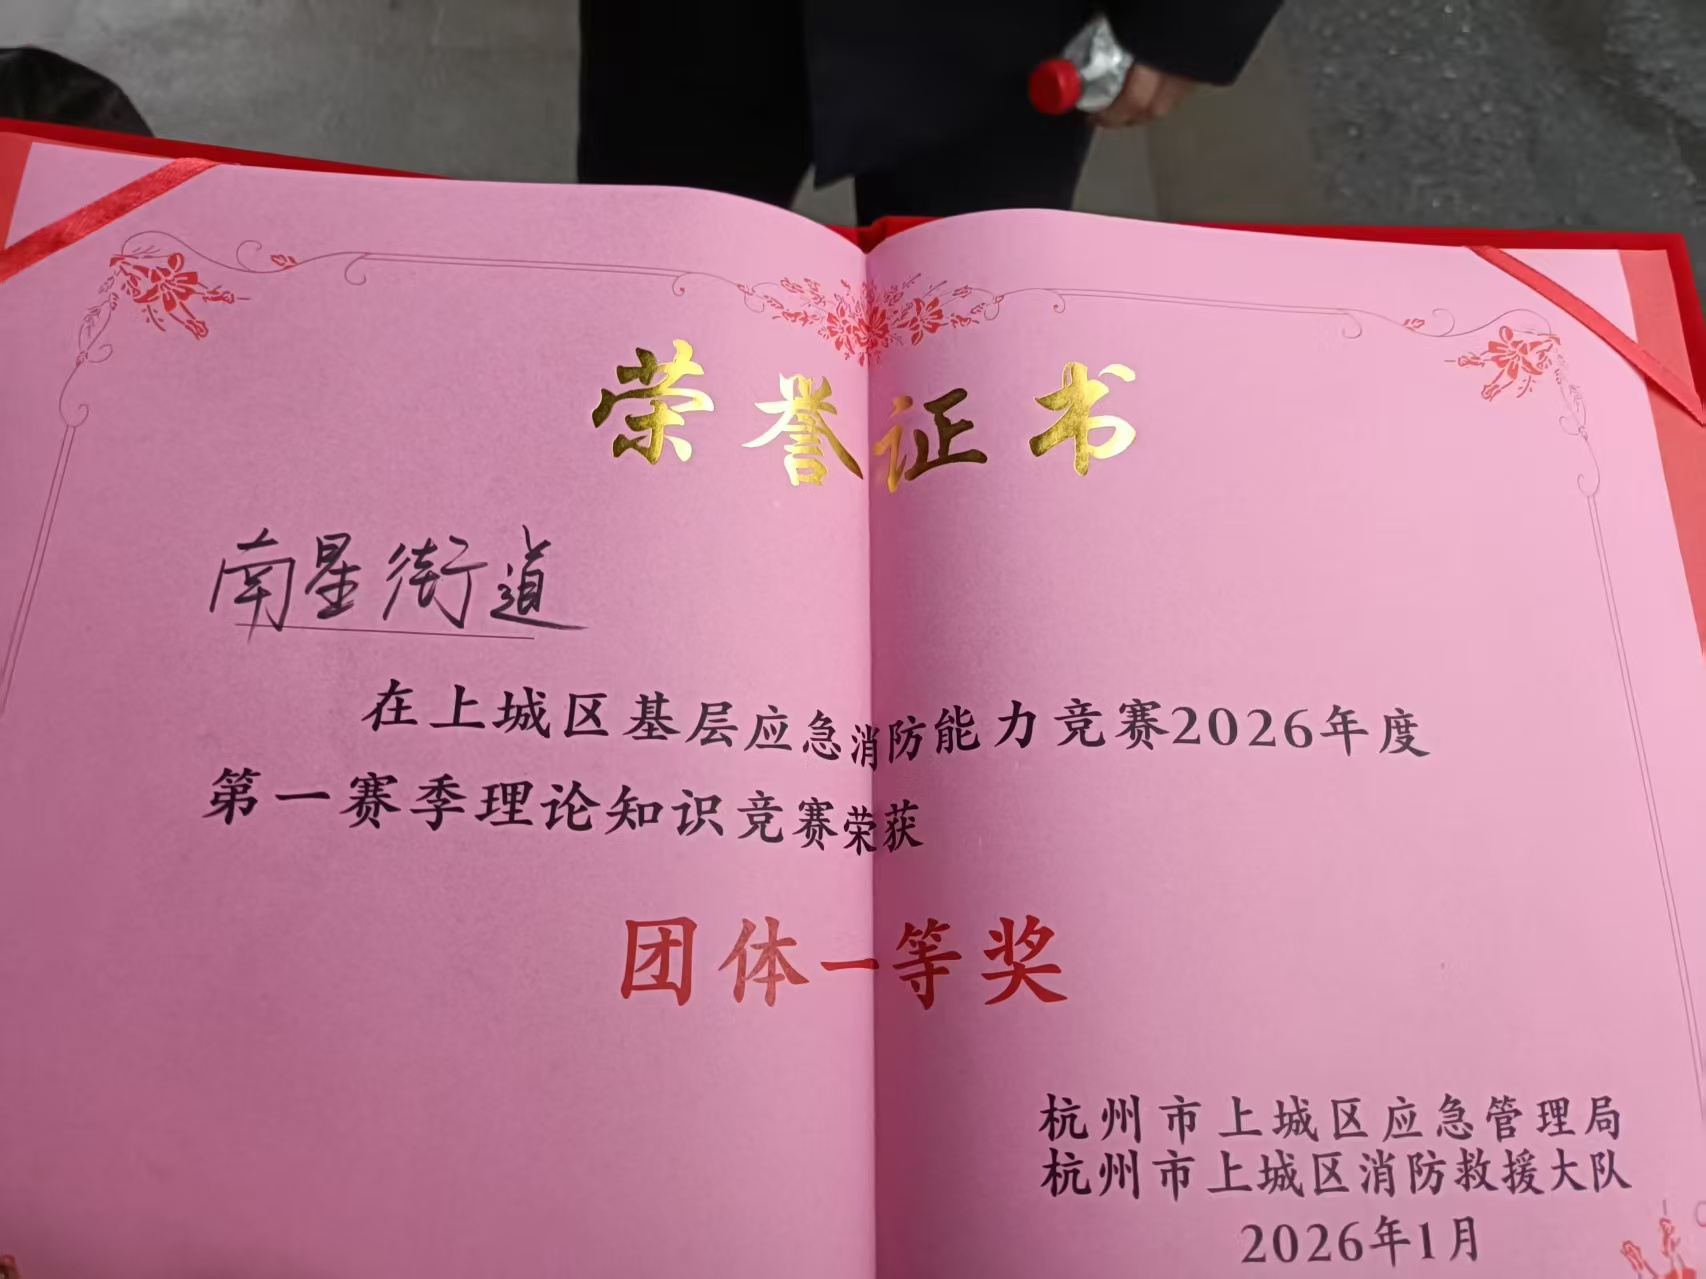 荣誉证书
南星街道
在上城区基层应急消防能力竞赛2026年度
第一赛季理论知识竞赛荣获
团体一等奖
杭州市上城区应急管理局
杭州市上城区消防救援大队
2026年1月